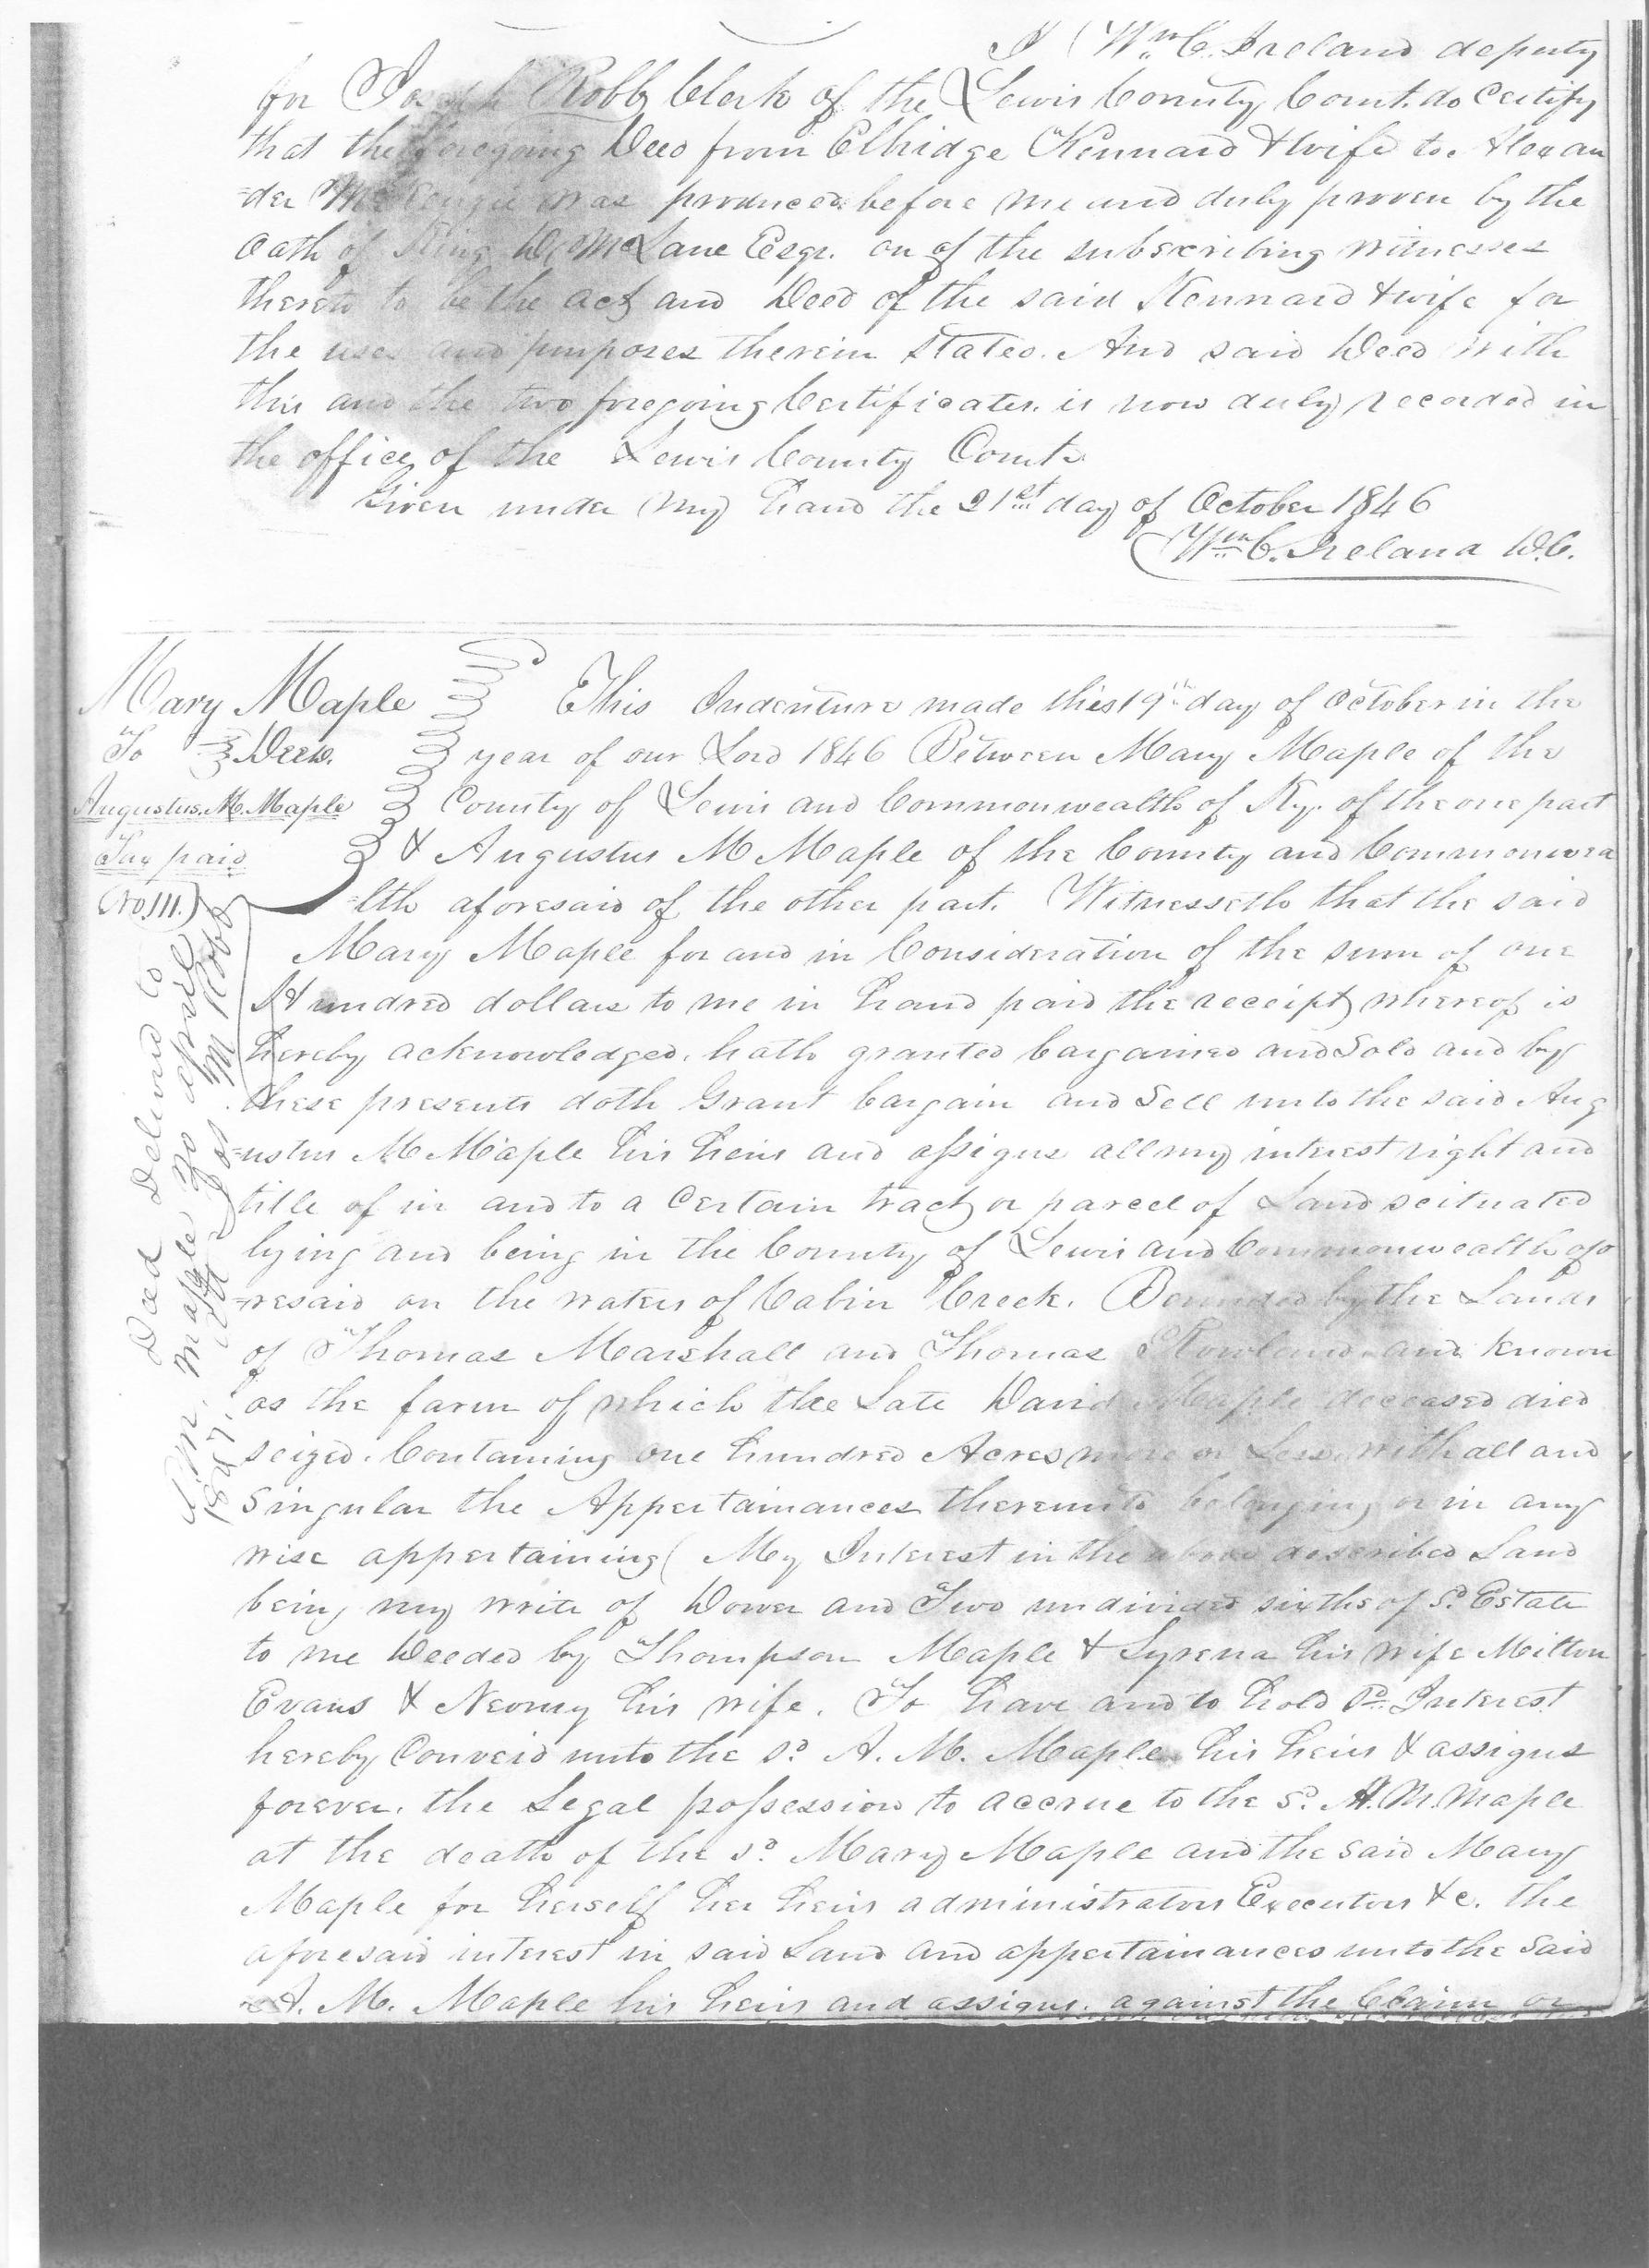 I Wm. C. Ireland deputy
for Joseph Robb Clerk of the Lewis County Court. do Certify
that the foregoing Deed from Elbridge Kennard & wife to. Alexan
=der McKenzie was produced before me and duly proven by the
Oath of King D. McLane Esqr. on of the subscribing witnesses
thereto to be the act and Deed of the said Kennard & wife for
the uses and purposes therein stated. And said Deed with
this and the two foregoing Certificates. is now duly recorded in
the office of the Lewis County Court.
Given under my hand the 21st day of October 1846
Wm. C. Ireland D.C.
Mary Maple
To Deed.
Augustus. M. Maple
Tax paid
(No. 111.)
This Indenture made this 19th day of October in the
year of our Lord 1846 Between Mary Maple of the
County of Lewis and Commonwealth of Ky. of the one part
& Augustus M Maple of the County and Commonwea
=lth aforesaid of the other part. Witnesseth that the said
Mary Maple for and in Consideration of the sum of one
Hundred dollars to me in hand paid the receipt whereof is
hereby acknowledged. hath granted bargained and Sold and by
these presents doth Grant bargain and Sell unto the said Aug
=ustus M Maple his heirs and assigns all my interest right and
title of in and to a Certain tract or parcel of Land scituated
lying and being in the County of Lewis and Commonwealth afo
=resaid on the waters of Cabin Creek. Bounded by the Lands
of Thomas Marshall and Thomas Rowland and known
as the farm of which the Late David Maple deceased died
seized. Containing one hundred Acres more or Less. with all and
Singular the Appertainances thereunto belonging or in any
wise appertaining (My Interest in the above described Land
being my write of Dower and Two undivided sixths of Sd. Estate
to me Deeded by Thompson Maple & Syrena his wife Milton
Evans & Neomy his wife. To have and to hold sd. Interest
hereby Conveid unto the sd. A. M. Maple his heirs & assigns
forever. the Legal possession to accrue to the sd. A. M. Maple
at the death of the sd. Mary Maple and the said Mary
Maple for herself her heirs administrators Executors &c. the
aforesaid interest in said Land and appertainances unto the said
A. M. Maple his heirs and assigns. against the Claim or
Deed Delivered to
A. M. Maple 20 april
1847. Att Jos M Robb